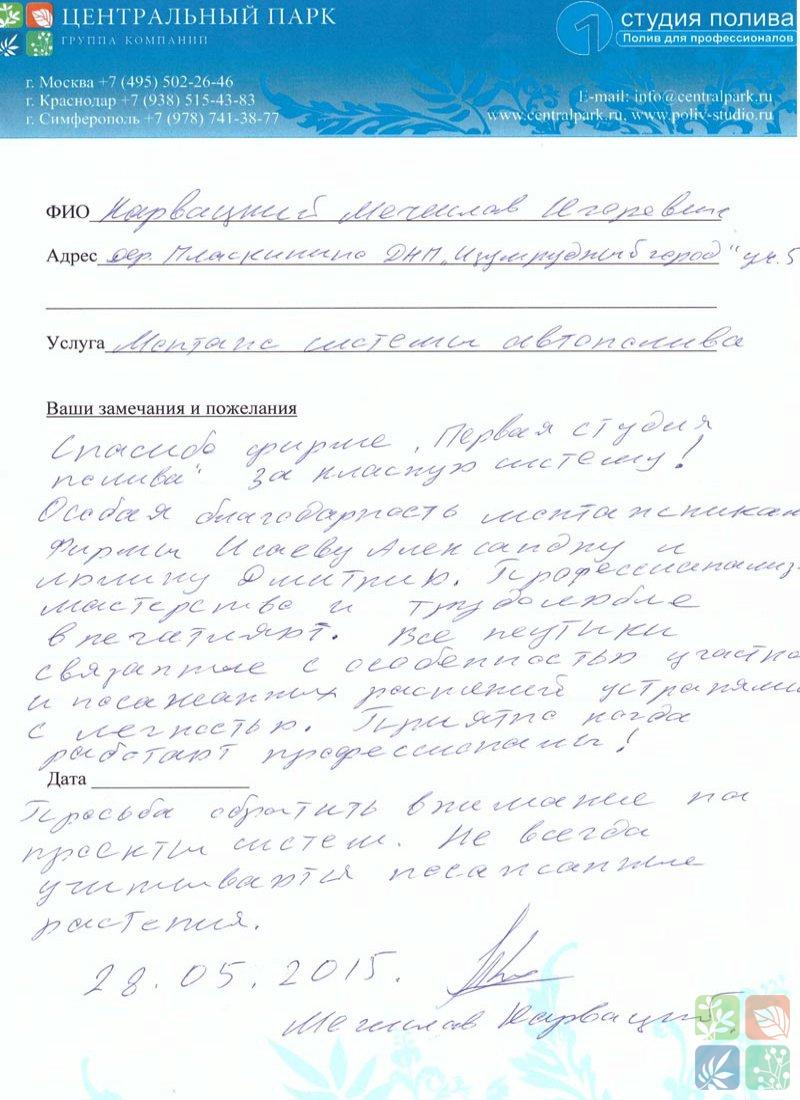 ЦЕНТРАЛЬНЫЙ ПАРК
ГРУППА КОМПАНИЙ
1 СТУДИЯ ПОЛИВА
Полив для профессионалов
г. Москва +7 (495) 502-26-46
г. Краснодар +7 (938) 515-43-83
г. Симферополь +7 (978) 741-38-77
E-mail: info@centralpark.ru
www.centralpark.ru, www.poliv-studio.ru
ФИО Карвацкий Мечислав Игоревич
Адрес дер. Пласкинино ДНП „Изумрудный город" уч. 5
Услуга Монтаж системы автополива
Ваши замечания и пожелания
Спасибо фирме „Первая студия
полива" за класную систему!
Особая благодарность монтажникам
Фирмы Исаеву Александру и
Дмитрию. Профессионализ-
мастерство и трудолюбие
впечатляют. Все
связанные с особенностью участка
и посажанных растений устраняли
с легностью. Приятно когда
работают профессионалы!
Дата
Просьба обратить внимание на
проекты систем. Не всегда
учитываются посажанные
растения.
28.05.2015.
Мечислав Карвацкий